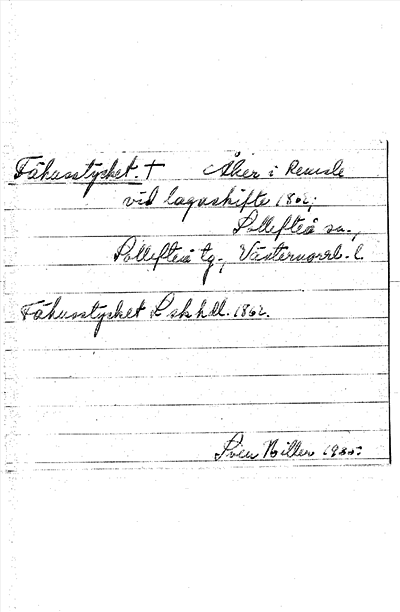 Fähusstycket. † Åker i Remsle
vid lagaskifte 1862;
Sollefteå sn.,
Sollefteå tg., Västernorrl. l.
Fähusstycket L sk hdl. 1862.
Sven